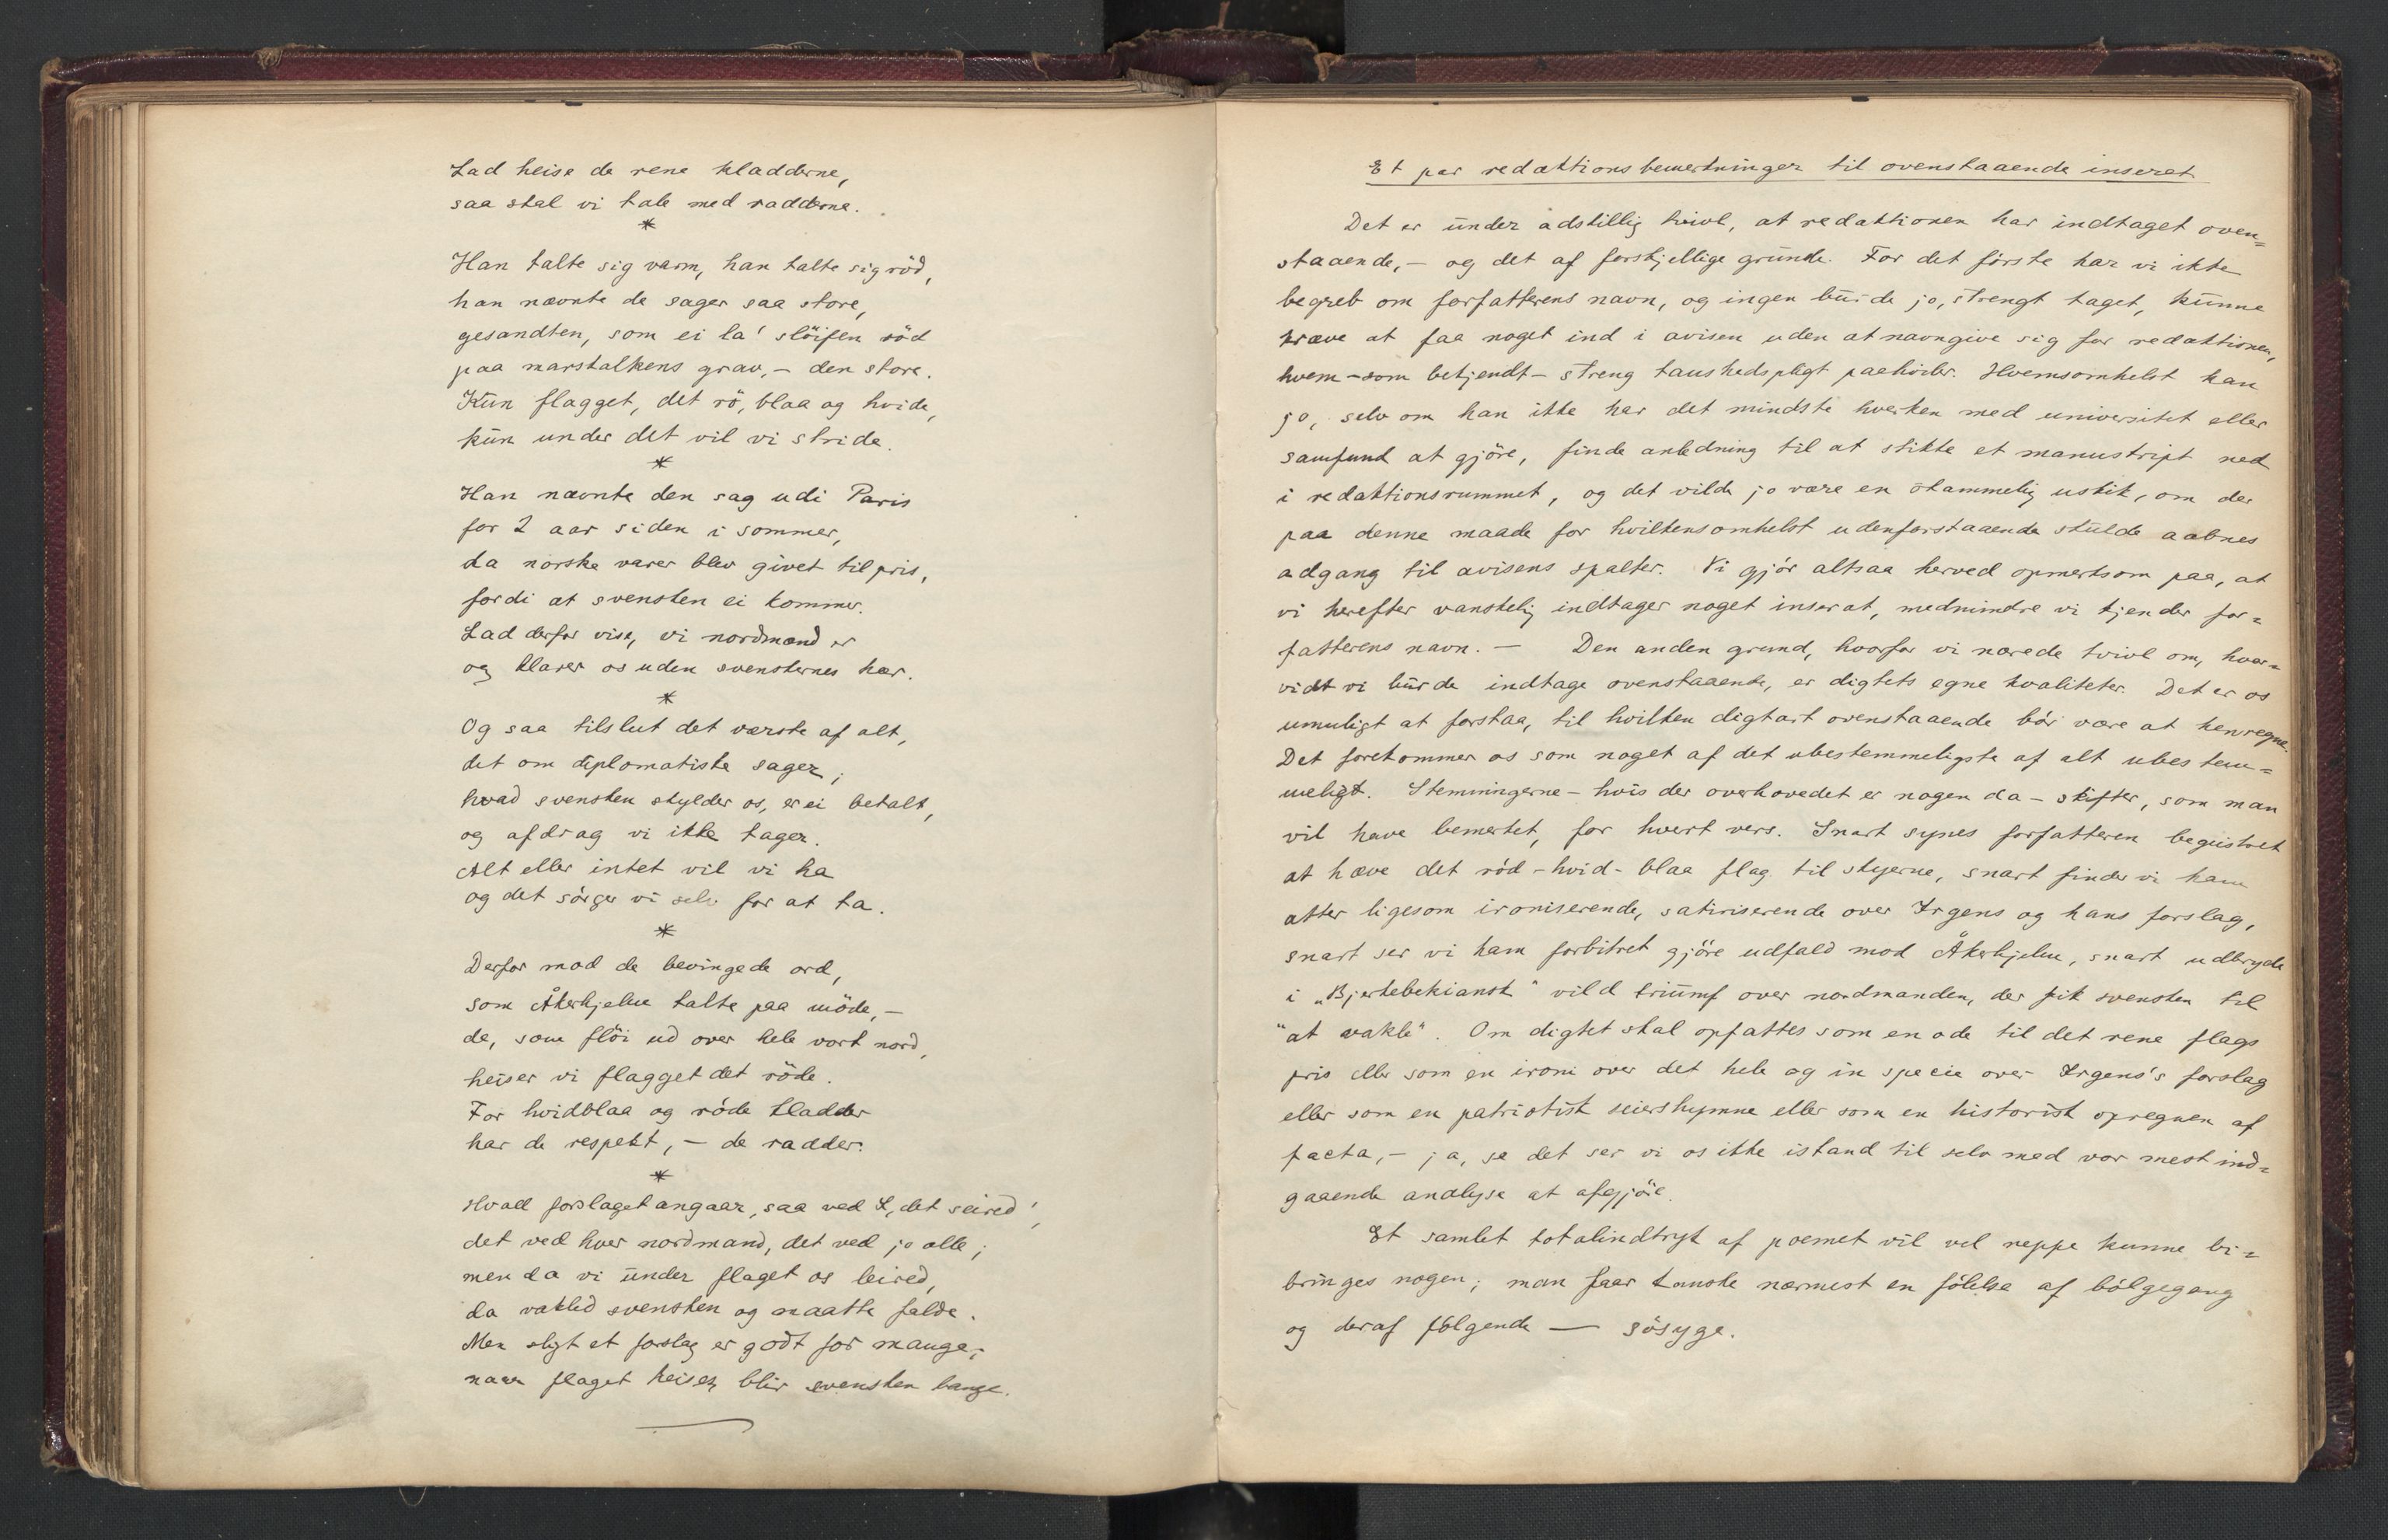 Lad heise de rene kladderne,
saa skal vi tale med radderne.
*
Han talte sig varm, han talte sig röd,
han nævnte de sager saa store,
gesandten, som ei la' slöifen röd
paa marskalkens grav, – den store.
Kun flagget, det rö, blaa og hvide,
kun under det vil vi stride.
*
Han nævnte den sag udi Paris
for 2 aar siden i sommer,
da norske varer blev givet tilpris,
fordi at svensken ei kommer.
Lad derfor vise, vi nordmænd er
og klarer os uden svenskernes hær.
*
Og saa tilslut det værste af alt,
det om diplomatiske sager;
hvad svensken skylder os, er ei betalt,
og afdrag vi ikke tager.
Alt eller intet vil vi ha
og det sörger vi selv for at ta.
*
Derfor mod de bevingede ord,
som Åkerhjelm talte paa möde, –
de, som flöi ud over hele vort nord,
heiser vi flagget det röde.
For hvidblaa og röde kladder
har de respekt, – de radder.
*
Hvad forslaget angaar, saa ved I, det seired',
det ved hver nordmand, det ved jo alle;
men da vi under flaget os leired,
da vakled svensken og maatte falde.
Men sligt et forslag er godt for mange;
naar flaget heises, blir svensken bange.
Et par redaktionsbemerkninger til ovenstaaende inserat
Det er under adskillig tvivl, at redaktionen har indtaget oven=
staaende, – og det af forskjellige grunde. For det förste har vi ikke
begreb om forfatterens navn, og ingen burde jo, strengt taget, kunne
kræve at faa noget ind i avisen uden at navngive sig for redaktionen,
hvem – som bekjendt – streng taushedspligt paahviler. Hvemsomhelst kan
jo, selv om han ikke har det mindste hverken med universitet eller
samfund at gjöre, finde anledning til at stikke et manuskript ned
i redaktionsrummet, og det vilde jo være en ustik, om der
paa denne maade for hvilkensomhelst udenforstaaende skulde aabnes
adgang til avisens spalter. Vi gjör altsaa herved opmerksom paa, at
vi herefter vanskelig indtager noget inserat, medmindre vi kjender for=
fatterens navn. – Den anden grund, hvorfor vi nærede tvivl om, hvor=
vidt vi burde indtage ovenstaaende, er digtets egne kvaliteter. Det er os
umuligt at forstaa, til hvilken digtart ovenstaaende bör være at henregne.
Det forekommer os som noget af det ubestemmeligste af alt ubestem=
meligt. Stemningerne – hvis der overhovedet er nogen da – skifter, som man
vil have bemerket, for hvert vers. Snart synes forfatteren begeistret
at hæve det röd-hvid-blaa flag til skyerne, snart finder vi ham
atter ligesom ironiserende, satiriserende over Irgens og hans forslag,
snart ser vi ham forbitret gjöre udfald mod Åkerhjelm, snart udbryde
i "Bjerkebekiansk" vild triumf over nordmanden, der fik svensken til
"at vakle". Om digtet skal opfattes som en ode til det rene flags
pris eller som en ironi over det hele og in specie over Irgens's forslag
eller som en patriotisk seiershymne eller som en historisk opregnen af
facta, – ja, se det ser vi os ikke istand til selv med vor mest ind=
gaaende analyse at afgjöre.
Et samlet totalindtryk af poemet vil vel neppe kunne bi=
bringes nogen; man faar kanske nærmest en fölelse af bölgegang
og deraf fölgende — sösyge.